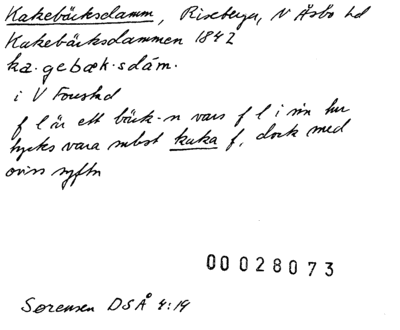 Kakebäcksdamm, Riseberga, N Åsbo hd
Kakebäcksdammen 1842
ka·gebæk·sdám·
i V Forestad
f l är ett bäck-n vars f l i sin tur
tycks vara subst kaka f, dock med
oviss syftn
00028073
Sørensen DSÅ 4:19